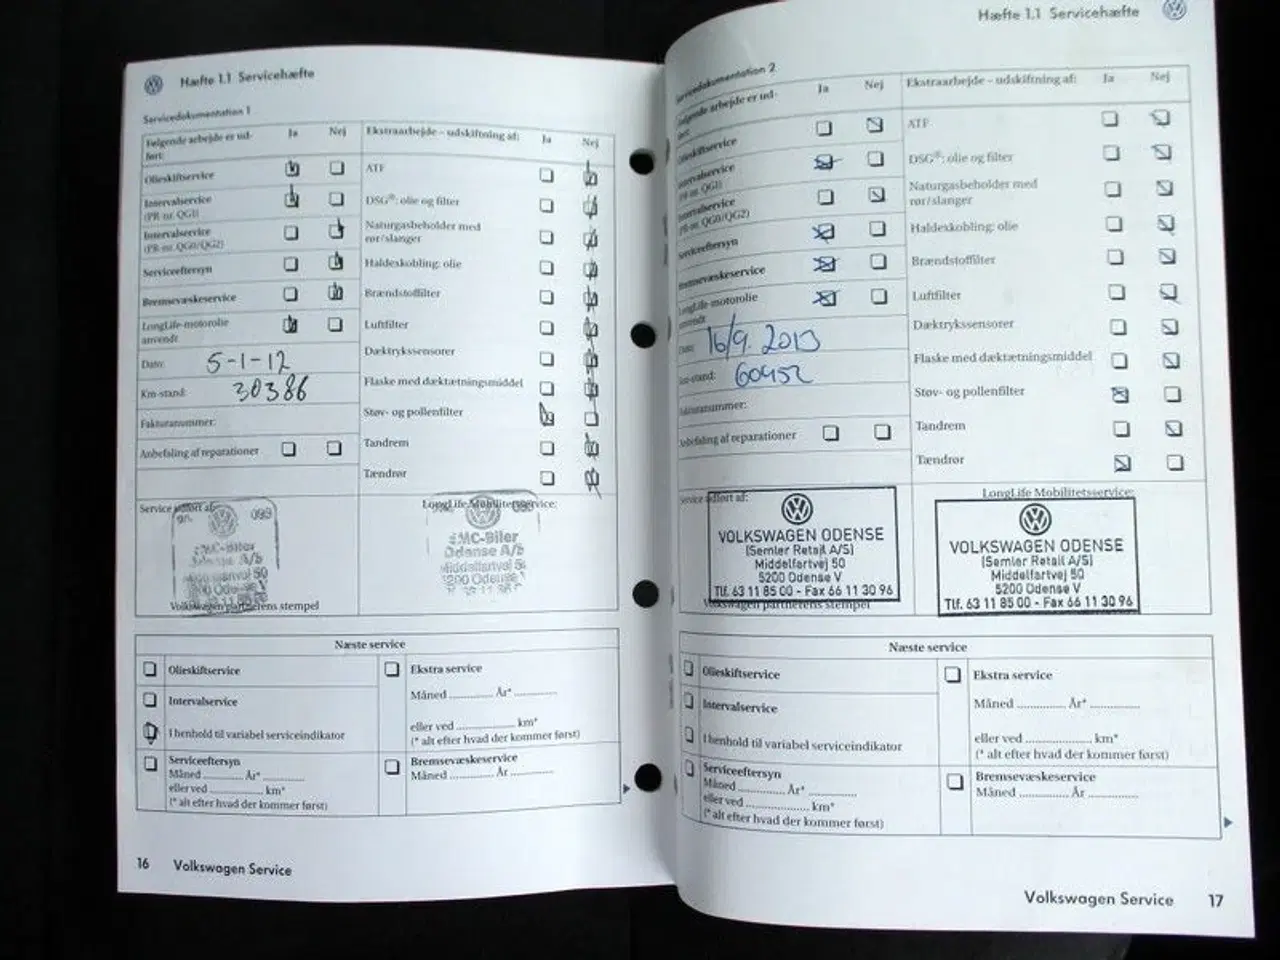 Hæfte 1.1 Servicehæfte
Servicedokumentation 1
Følgende arbejde er ud-
ført:
Ja Nej
Ekstraarbejde – udskiftning af: Ja Nej
Olieskiftservice
Intervalservice
(PR-nr. QG1)
Intervalservice
(PR-nr. QG0/QG2)
Serviceeftersyn
Bremsevæskeservice
LongLife-motorolie
anvendt
Dato: 5-1-12
Km-stand: 30386
Fakturanummer:
Anbefaling af reparationer
ATF
DSG®: olie og filter
Naturgasbeholder med
rør/slanger
Haldeskobling: olie
Brændstoffilter
Luftfilter
Dæktrykssensorer
Flaske med dæktætningsmiddel
Støv- og pollenfilter
Tandrem
Tændrør
Service udført af:
093
Odense A/S
Volkswagen partnerens stempel
LongLife Mobilitetsservice:
SMC-Biler
Odense A/S
Middelfartvej 50
5200 Odense V
Næste service
Olieskiftservice
Intervalservice
I henhold til variabel serviceindikator
Serviceeftersyn
Måned .......... År* ..........
eller ved .......... km*
(* alt efter hvad der kommer først)
Ekstra service
Måned .......... År* ..........
eller ved .......... km*
(* alt efter hvad der kommer først)
Bremsevæskeservice
Måned .......... År ..........
16 Volkswagen Service
Hæfte 1.1 Servicehæfte
Servicedokumentation 2
Følgende arbejde er ud-
ført:
Ja Nej
Ekstraarbejde – udskiftning af: Ja Nej
Olieskiftservice
Intervalservice
(PR-nr. QG1)
Intervalservice
(PR-nr. QG0/QG2)
Serviceeftersyn
Bremsevæskeservice
LongLife-motorolie
anvendt
Dato: 16/9. 2013
Km-stand: 60452
Fakturanummer:
Anbefaling af reparationer
ATF
DSG®: olie og filter
Naturgasbeholder med
rør/slanger
Haldeskobling: olie
Brændstoffilter
Luftfilter
Dæktrykssensorer
Flaske med dæktætningsmiddel
Støv- og pollenfilter
Tandrem
Tændrør
Service udført af:
VOLKSWAGEN ODENSE
(Semler Retail A/S)
Middelfartvej 50
5200 Odense V
Tlf. 63 11 85 00 - Fax 66 11 30 96
Volkswagen partnerens stempel
LongLife Mobilitetsservice:
VOLKSWAGEN ODENSE
(Semler Retail A/S)
Middelfartvej 50
5200 Odense V
Tlf. 63 11 85 00 - Fax 66 11 30 96
Næste service
Olieskiftservice
Intervalservice
I henhold til variabel serviceindikator
Serviceeftersyn
Måned .......... År* ..........
eller ved .......... km*
(* alt efter hvad der kommer først)
Ekstra service
Måned .......... År* ..........
eller ved .......... km*
(* alt efter hvad der kommer først)
Bremsevæskeservice
Måned .......... År ..........
Volkswagen Service 17